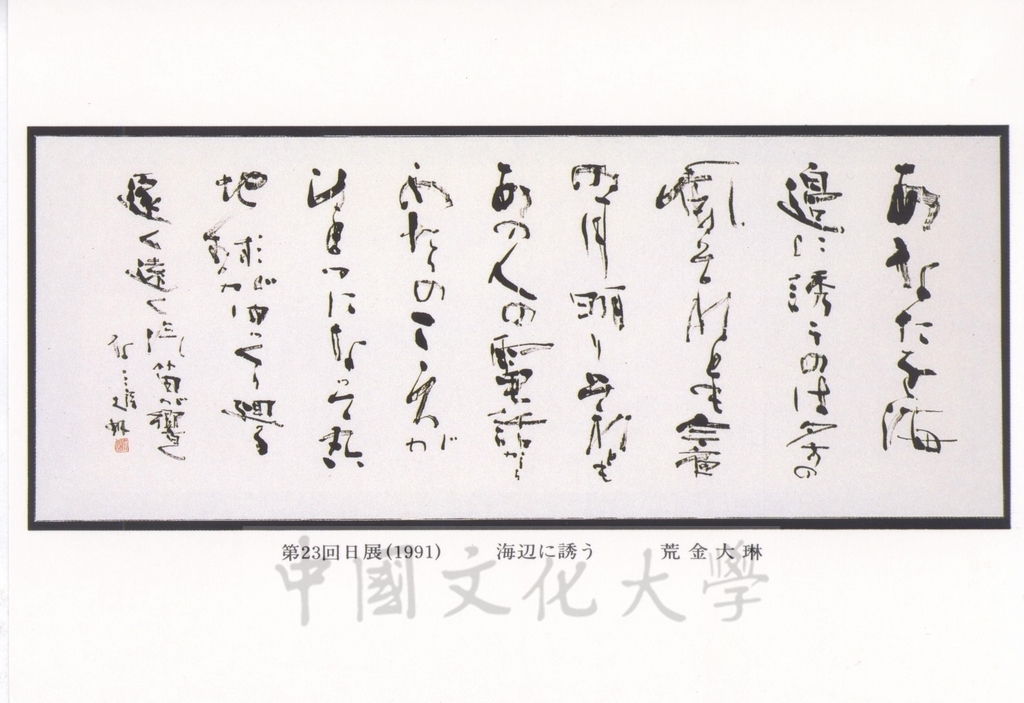 あなたを海
邊に誘うのは
風それとも今夜
の月明りそれとも
あの人の電話から
ふたりのこころが
ひとつになって丸い
地球がゆっくり廻る
遠く遠く汽笛が響く
第23回日展(1991) 海辺に誘う 荒金大琳
中國文化大學